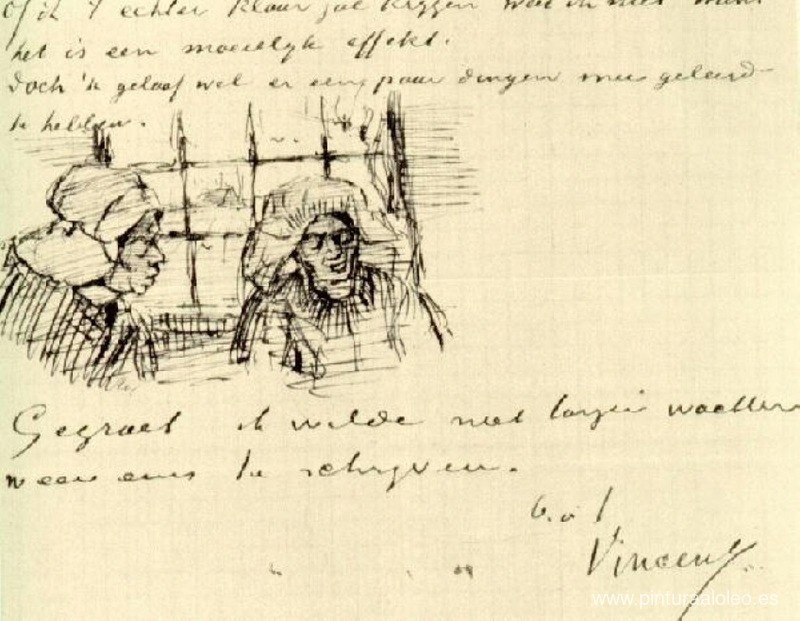 Of ik 't echter klaar zal krijgen weet ik niet want
het is een moeielyk effekt.
Doch 'k geloof wel er een paar dingen mee geleerd
te hebben.
Gegroet ik wilde niet langer wachten
weer eens te schryven.
b. à t
Vincent
www.pinturaaloleo.es